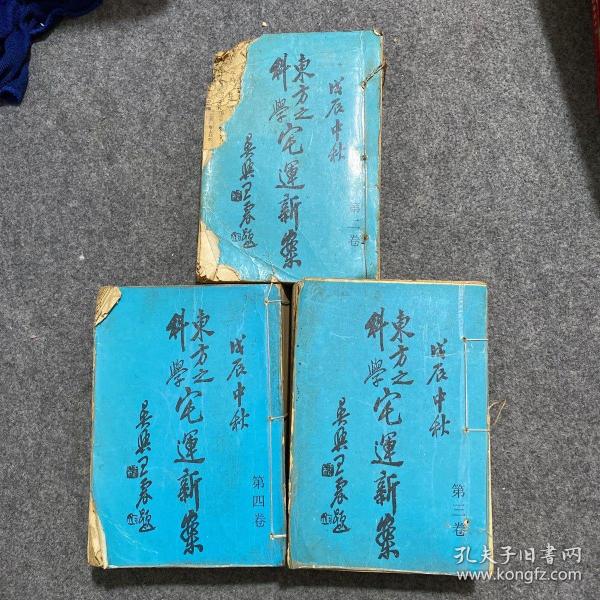 戊辰中秋
東方之
科學
宅運新案
吳興王震題
第二卷
戊辰中秋
東方之
科學
宅運新案
吳興王震題
第四卷
戊辰中秋
東方之
科學
宅運新案
吳興王震題
第三卷
孔夫子旧書网
www.kongfz.com